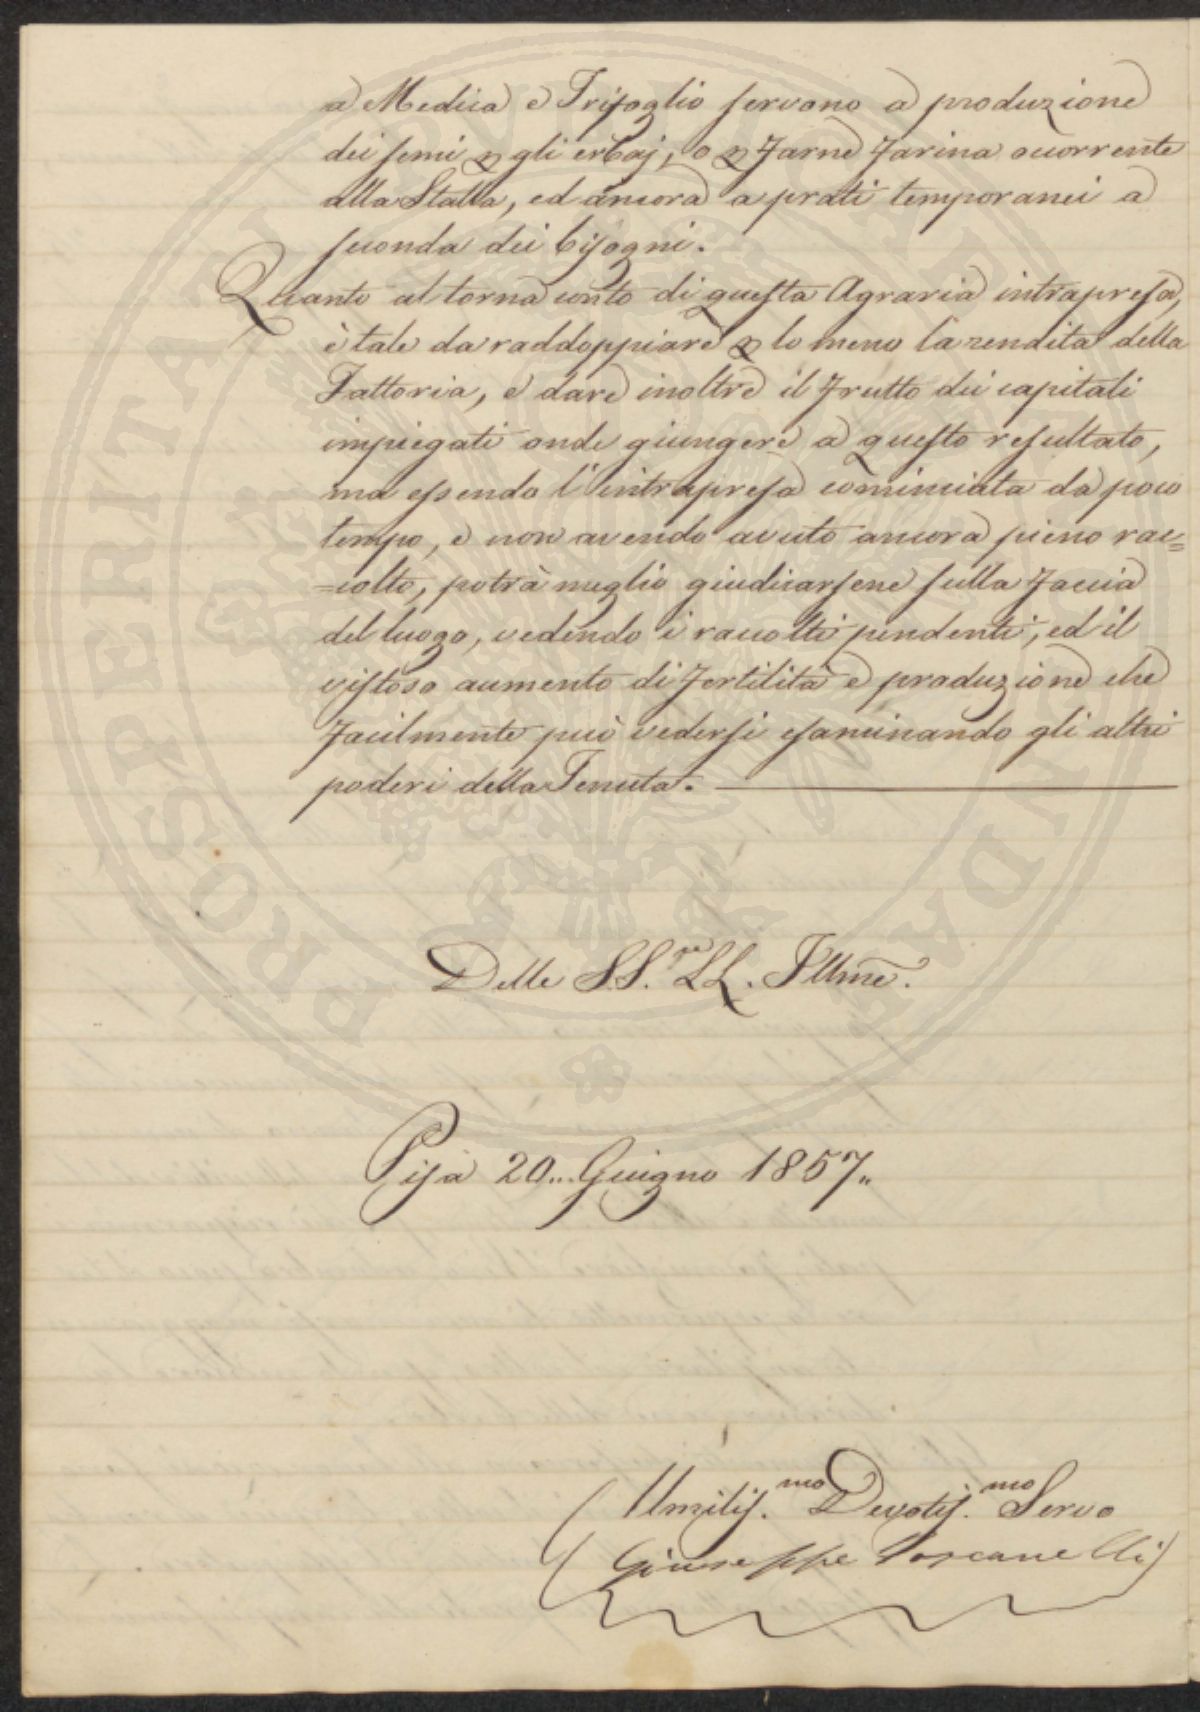 a Medica e Trifoglio servono a produzione
dei semi p gli erbaj, o p farne farina ocorrente
alla Stalla, ed ancora a prati temporanei a
seconda dei bisogni.
Quanto al torna conto di questa Agraria intrapresa,
è tale da raddoppiare p lo meno la rendita della
Fattoria, e dare inoltre il frutto dei capitali
impiegati onde giungere a questo resultato,
ma essendo l'intrapresa cominciata da poco
tempo, e non avendo avuto ancora pieno rac=
=colto, potrà meglio giudicarsene sulla faccia
del luogo, vedendo i raccolti pendenti, ed il
vistoso aumento di fertilità e produzione che
facilmente può vedersi esaminando gli altri
poderi della Tenuta.
Delle SS.re LL. Illme.
Pisa 20.. Giugno 1857..
Umilis.mo Devotis.mo Servo
Giuseppe Toscanelli
PROSPERITATI PVBLICAE AVGENDAE